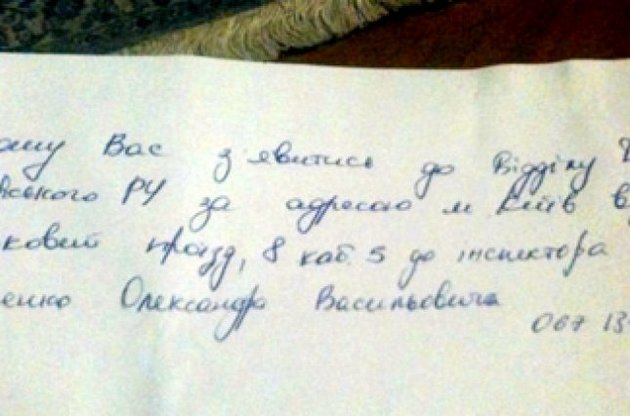 Вас з'явитись до Відділу
РУ за адресою м Київ
проїзд, 8 каб. 5 до інспектора
енко Олександра Васильовича
067 13